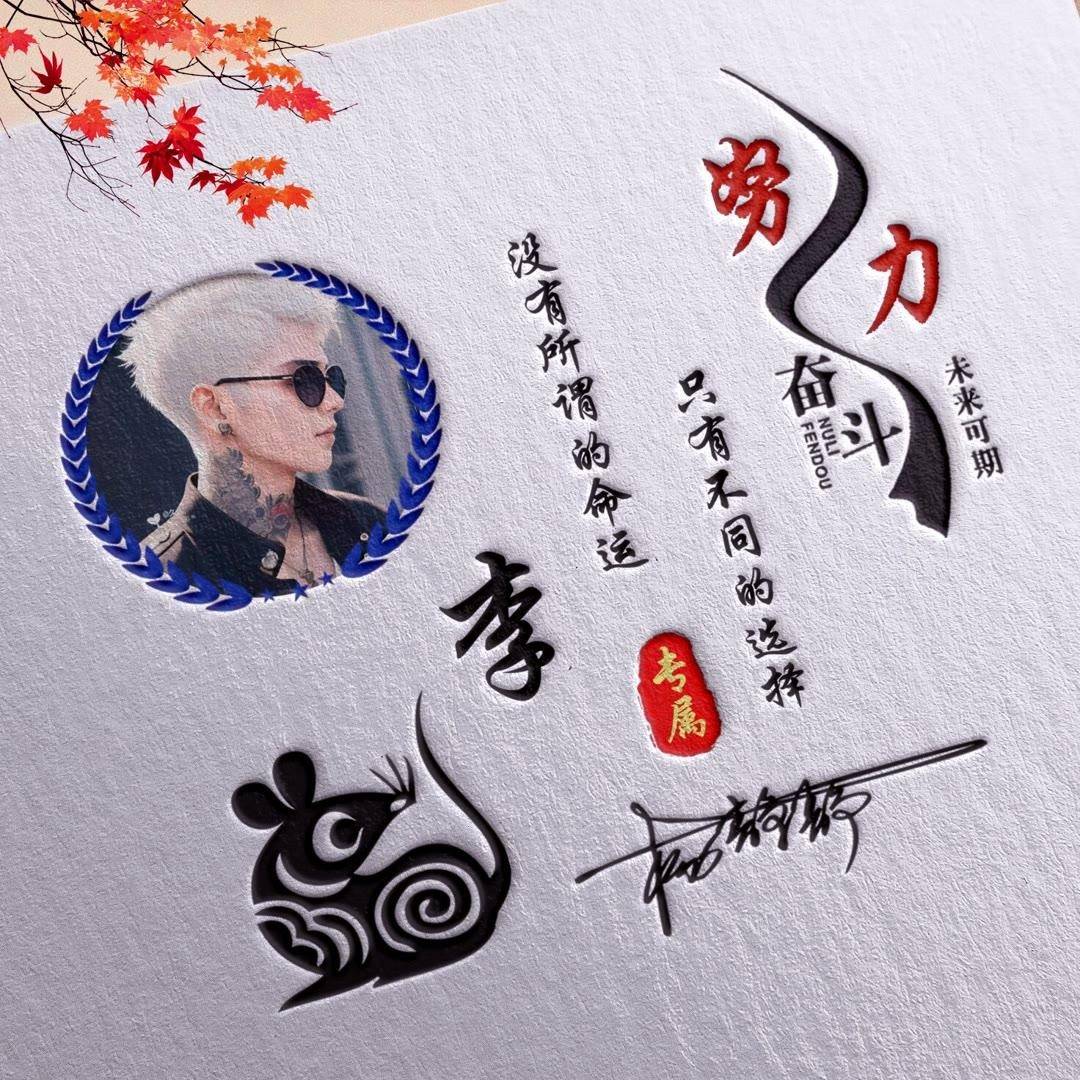 努力
奋斗
NULI
FENDOU
未来可期
没有所谓的命运
只有不同的选择
李
专属